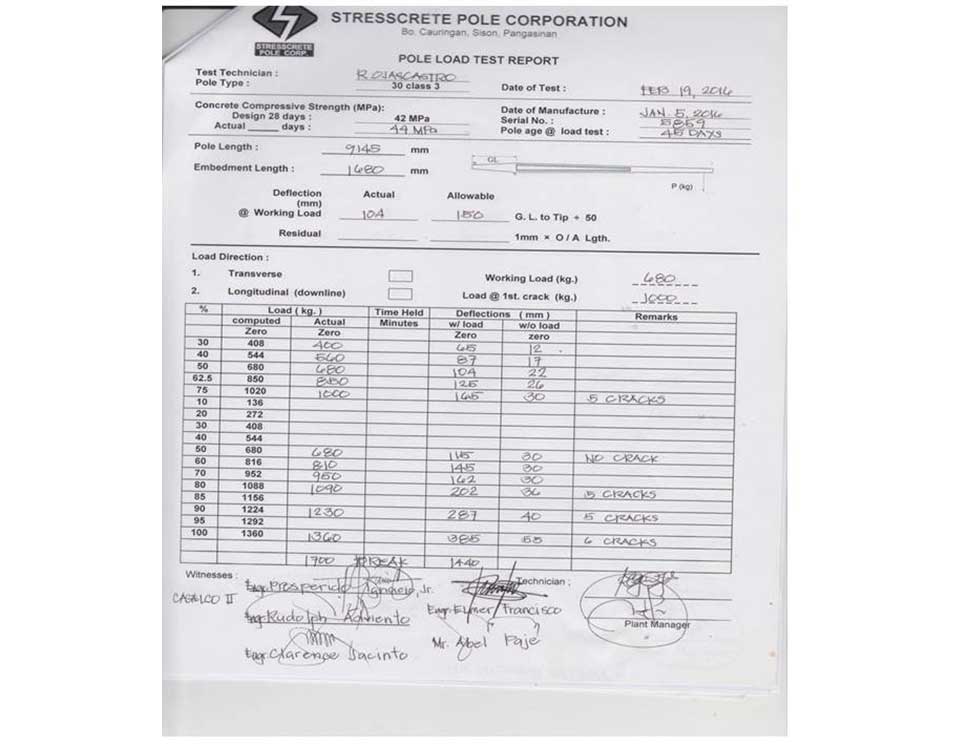 STRESSCRETE POLE CORPORATION
Bo. Cauringan, Sison, Pangasinan
STRESSCRETE
POLE CORP.
POLE LOAD TEST REPORT
Test Technician : R. OJASCASTRO
Pole Type : 30 class 3
Date of Test : FEB 19, 2016
Concrete Compressive Strength (MPa):
Design 28 days : 42 MPa
Actual _____ days : 44 MPa
Date of Manufacture : JAN. 5, 2016
Serial No. : 5859
Pole age @ load test : 45 DAYS
Pole Length : 9145 mm
Embedment Length : 1680 mm
GL
P (kg)
Deflection (mm) Actual Allowable
@ Working Load 104 150 G. L. to Tip ÷ 50
Residual 1mm × O / A Lgth.
Load Direction :
1. Transverse
Working Load (kg.) 680
2. Longitudinal (downline)
Load @ 1st. crack (kg.) 1000
% Load ( kg. ) Time Held Deflections ( mm ) Remarks
computed Actual Minutes w/ load w/o load
Zero Zero Zero zero
30 408 400 65 12
40 544 560 87 17
50 680 680 104 22
62.5 850 850 125 26
75 1020 1000 165 30 5 CRACKS
10 136
20 272
30 408
40 544
50 680 680 115 30 NO CRACK
60 816 810 145 30
70 952 950 162 30
80 1088 1090 202 36 5 CRACKS
85 1156
90 1224 1230 287 40 5 CRACKS
95 1292
100 1360 1360 385 55 6 CRACKS
1700 BREAK 1440
Witnesses :
Technician :
CASALCO II
Engr. Prosperido Agnacio, Jr.
Engr. Elmer Francisco
Engr. Rudolph Adviento
Plant Manager
Mr. Abel Paje
Engr. Clarence Jacinto